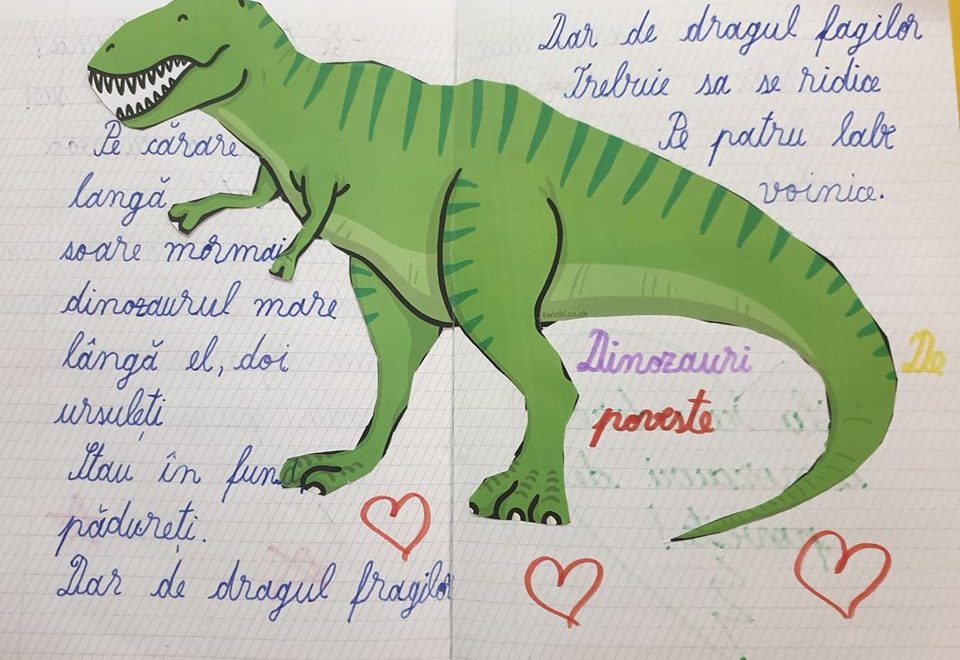 Pe cărare
langă
soare mormai
dinozaurul mare
lângă el, doi
ursuleți
Stau în fund
pădureți.
Dar de dragul fragilor
Dar de dragul fagilor
Trebuie sa se ridice
Pe patru labe
voinice.
twinkl.co.uk
Dinozauri De
poveste